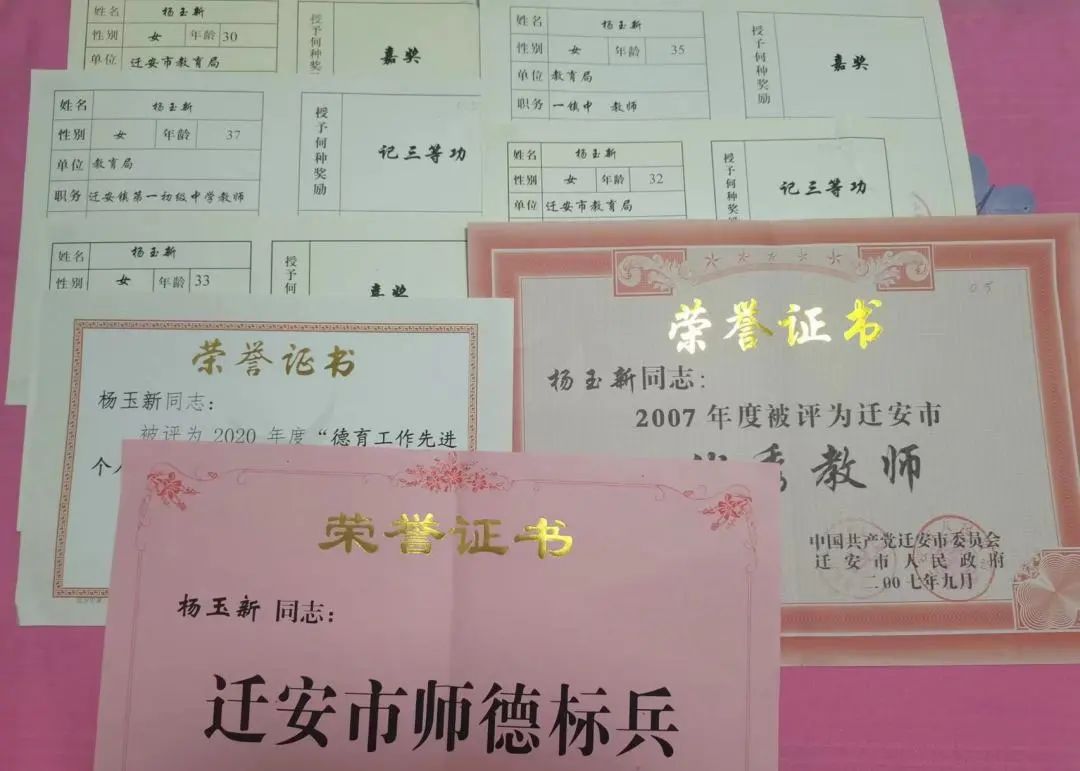 姓名 杨玉新
性别 女 年龄 30
单位 迁安市教育局
授予何种奖
嘉奖
姓名 杨玉新
性别 女 年龄 35
单位 教育局
职务 一镇中 教师
授予何种奖励
嘉奖
姓名 杨玉新
性别 女 年龄 37
单位 教育局
职务 迁安镇第一初级中学教师
授予何种奖励
记三等功
姓名 杨玉新
性别 女 年龄 32
单位 迁安市教育局
授予何种奖
记三等功
姓名 杨玉新
性别 女 年龄 33
授予何
嘉奖
荣誉证书
杨玉新同志:
被评为 2020 年度“德育工作先进
个人
荣誉证书
杨玉新同志:
2007 年度被评为迁安市
秀教师
中国共产党迁安市委员会
迁安市人民政府
二〇〇七年九月
荣誉证书
杨玉新 同志:
迁安市师德标兵